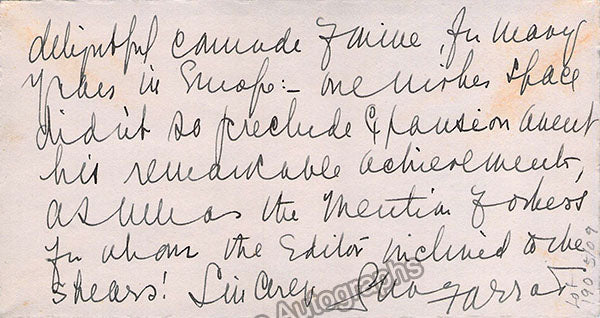 delightful comrade of mine, for many
years in Europe:— one wishes space
didn't so preclude expansion anent
his remarkable achievements,
as well as the mention of others
for whom the Editor inclined to the
shears! Sincerely Farrar
Autographs